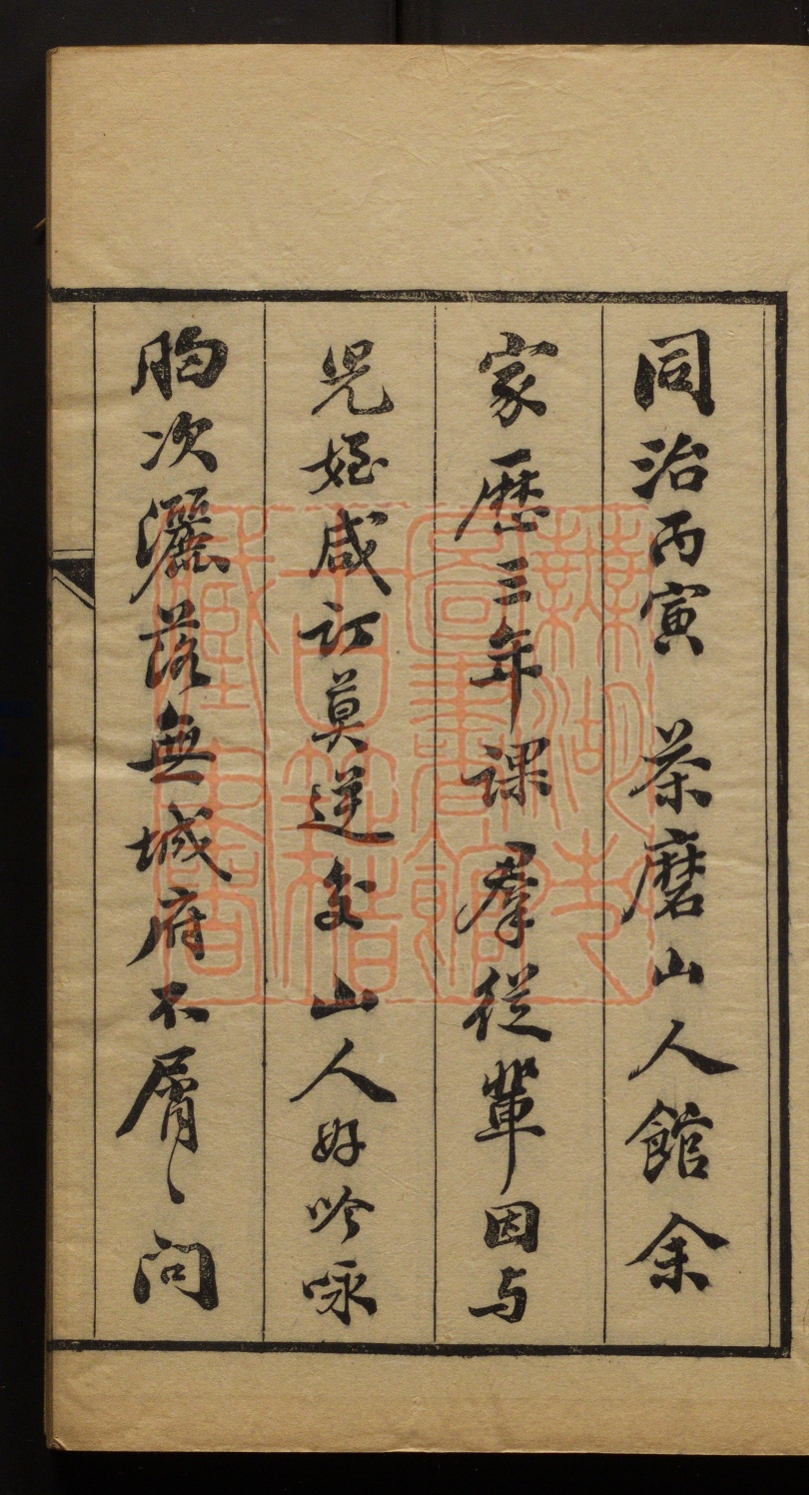 同治丙寅茶磨山人館余
家歷三年課羣從輩因与
兄姪咸訂莫逆交山人好吟咏
胸次灑落無城府不屑〻問